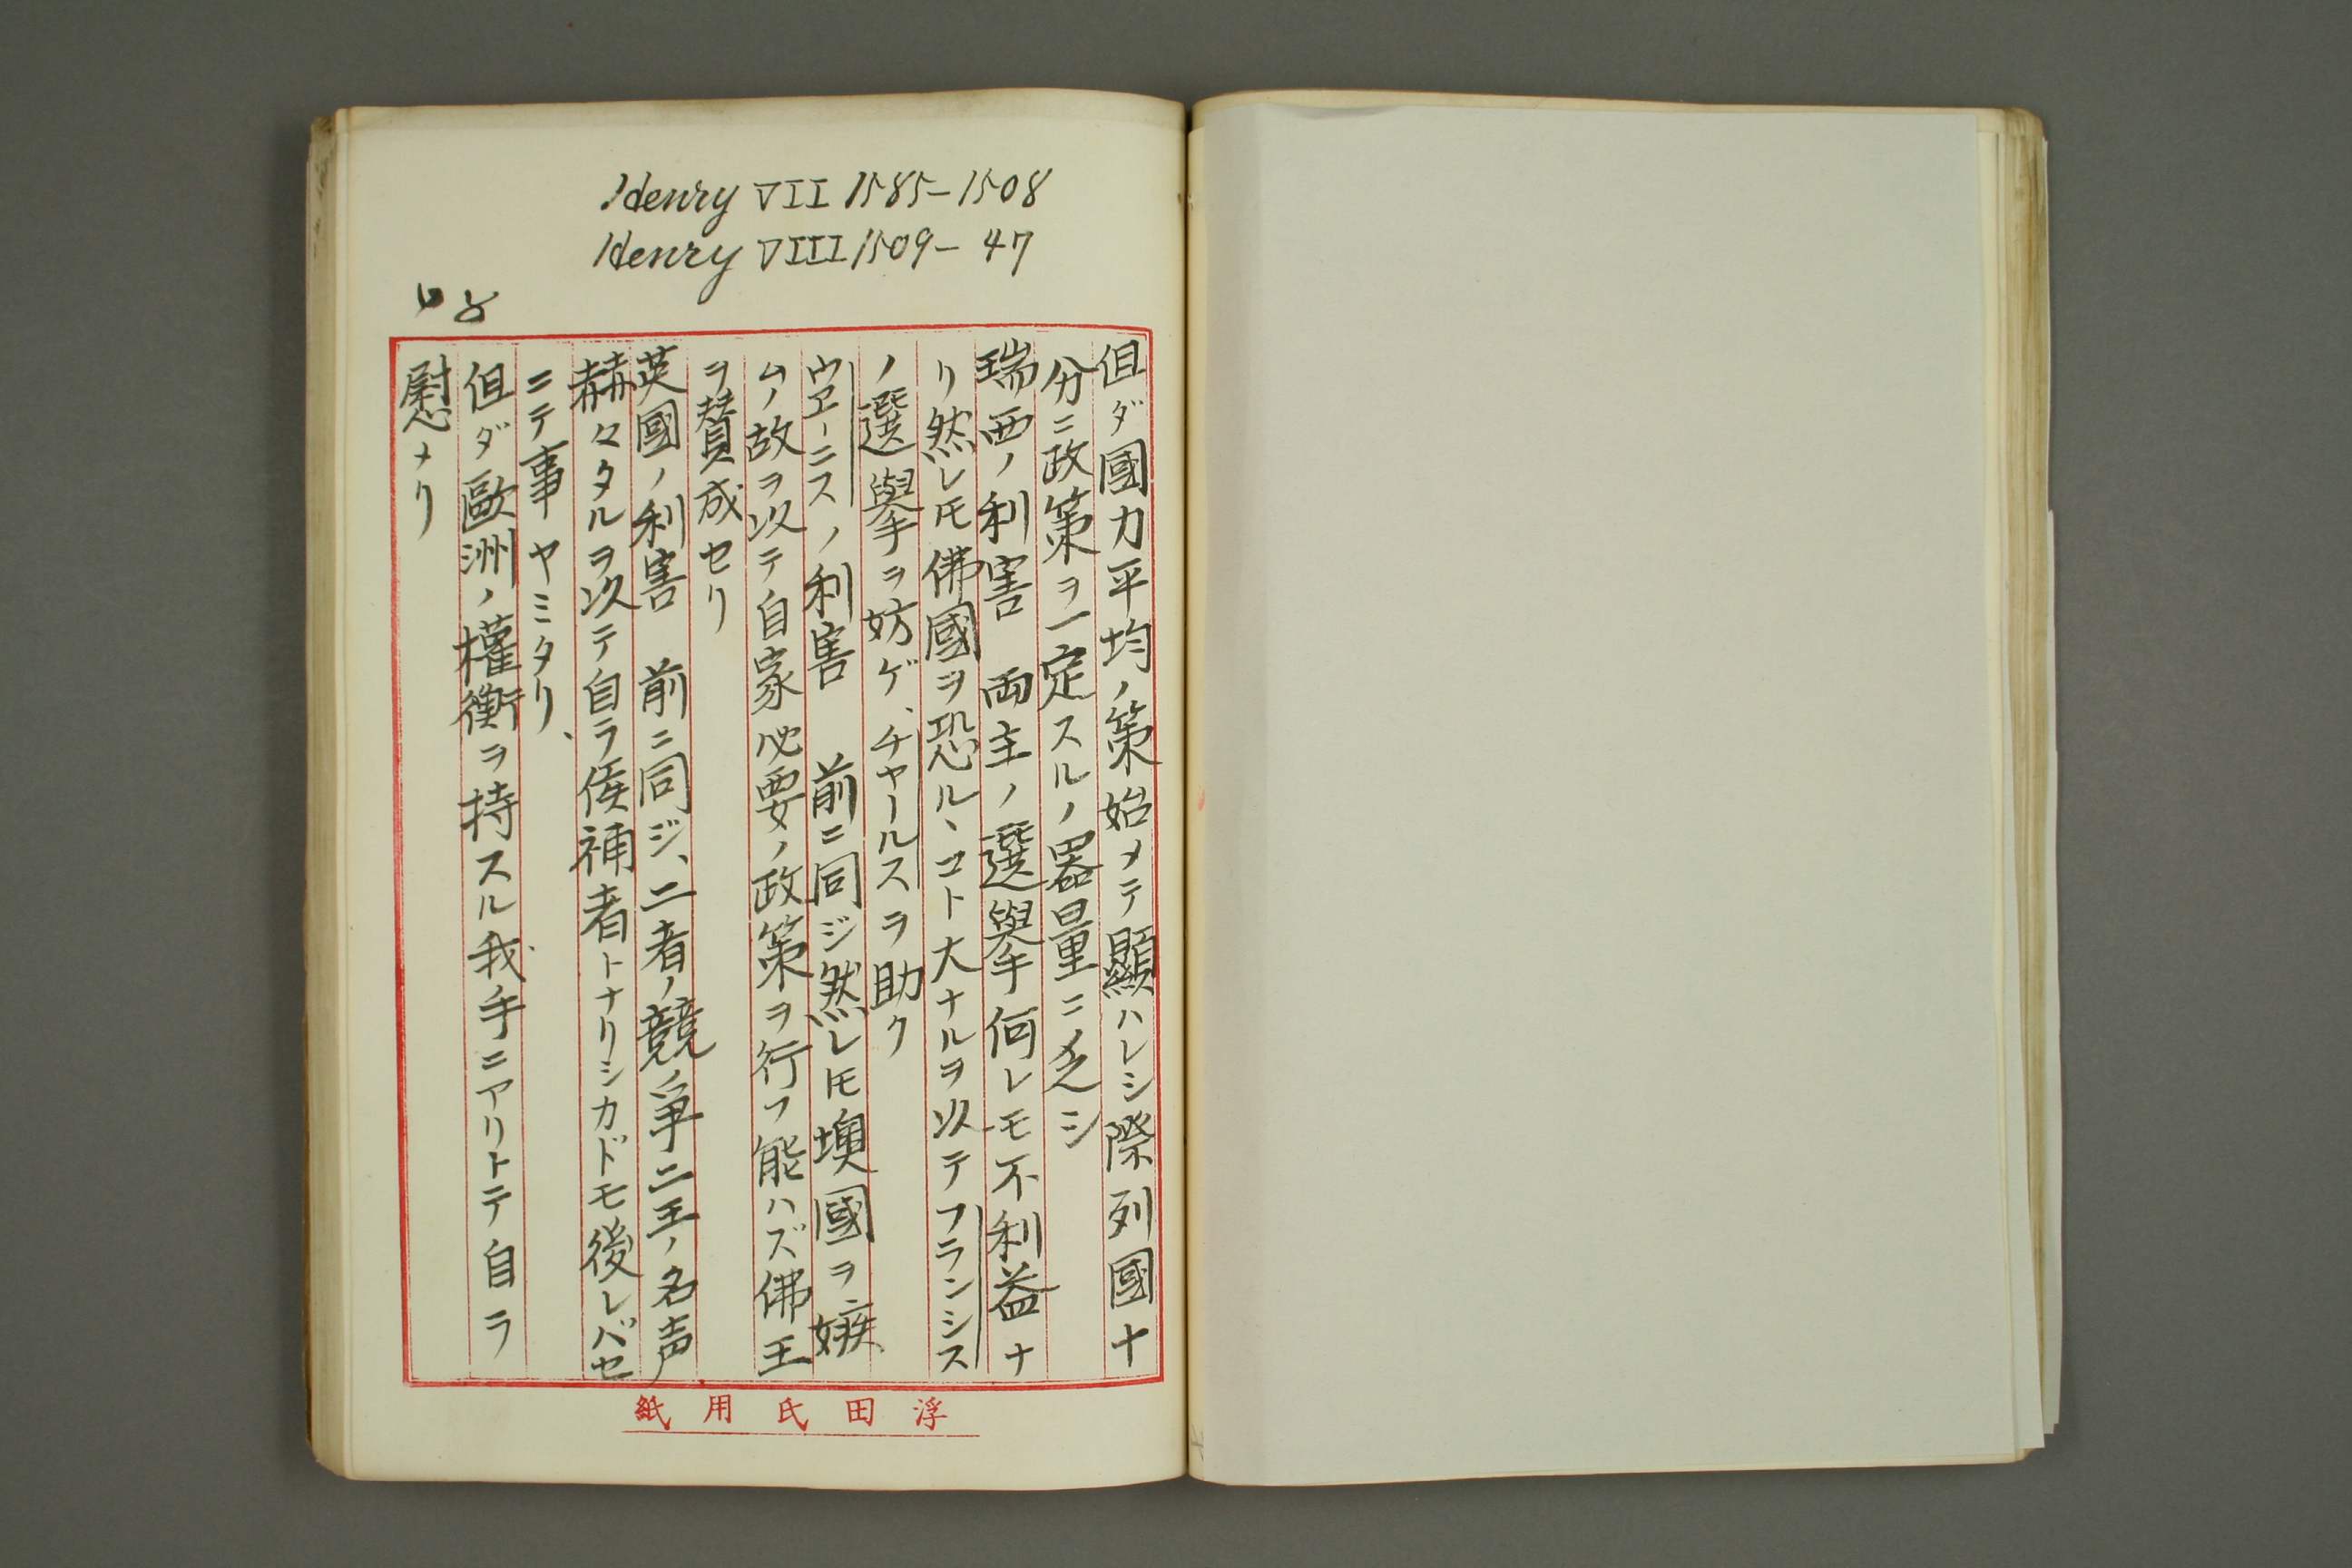 Henry VII 1585-1508
Henry VIII 1509- 47
但ダ國力平均ノ策始メテ顯ハレシ際列國十
分ニ政策ヲ一定スルノ器量ニ乏シ
瑞西ノ利害 両主ノ選擧何レモ不利益ナ
リ然レ𪜈佛國ヲ恐ルヽコト大ナルヲ以テフランシス
ノ選擧ヲ妨ゲ、チャールスヲ助ク
ウヱーニスノ利害 前ニ同ジ然レ𪜈墺國ヲ嫉
ムノ故ヲ以テ自家必要ノ政策ヲ行フ能ハズ佛王
ヲ賛成セリ
英國ノ利害 前ニ同ジ、二者ノ競爭二王ノ名声
赫々タルヲ以テ自ラ候補者トナリシカドモ後レバセ
ニテ事ヤミタリ、
但ダ歐洲ノ權衡ヲ持スル我手ニアリトテ自ラ
慰メリ
浮田氏用紙